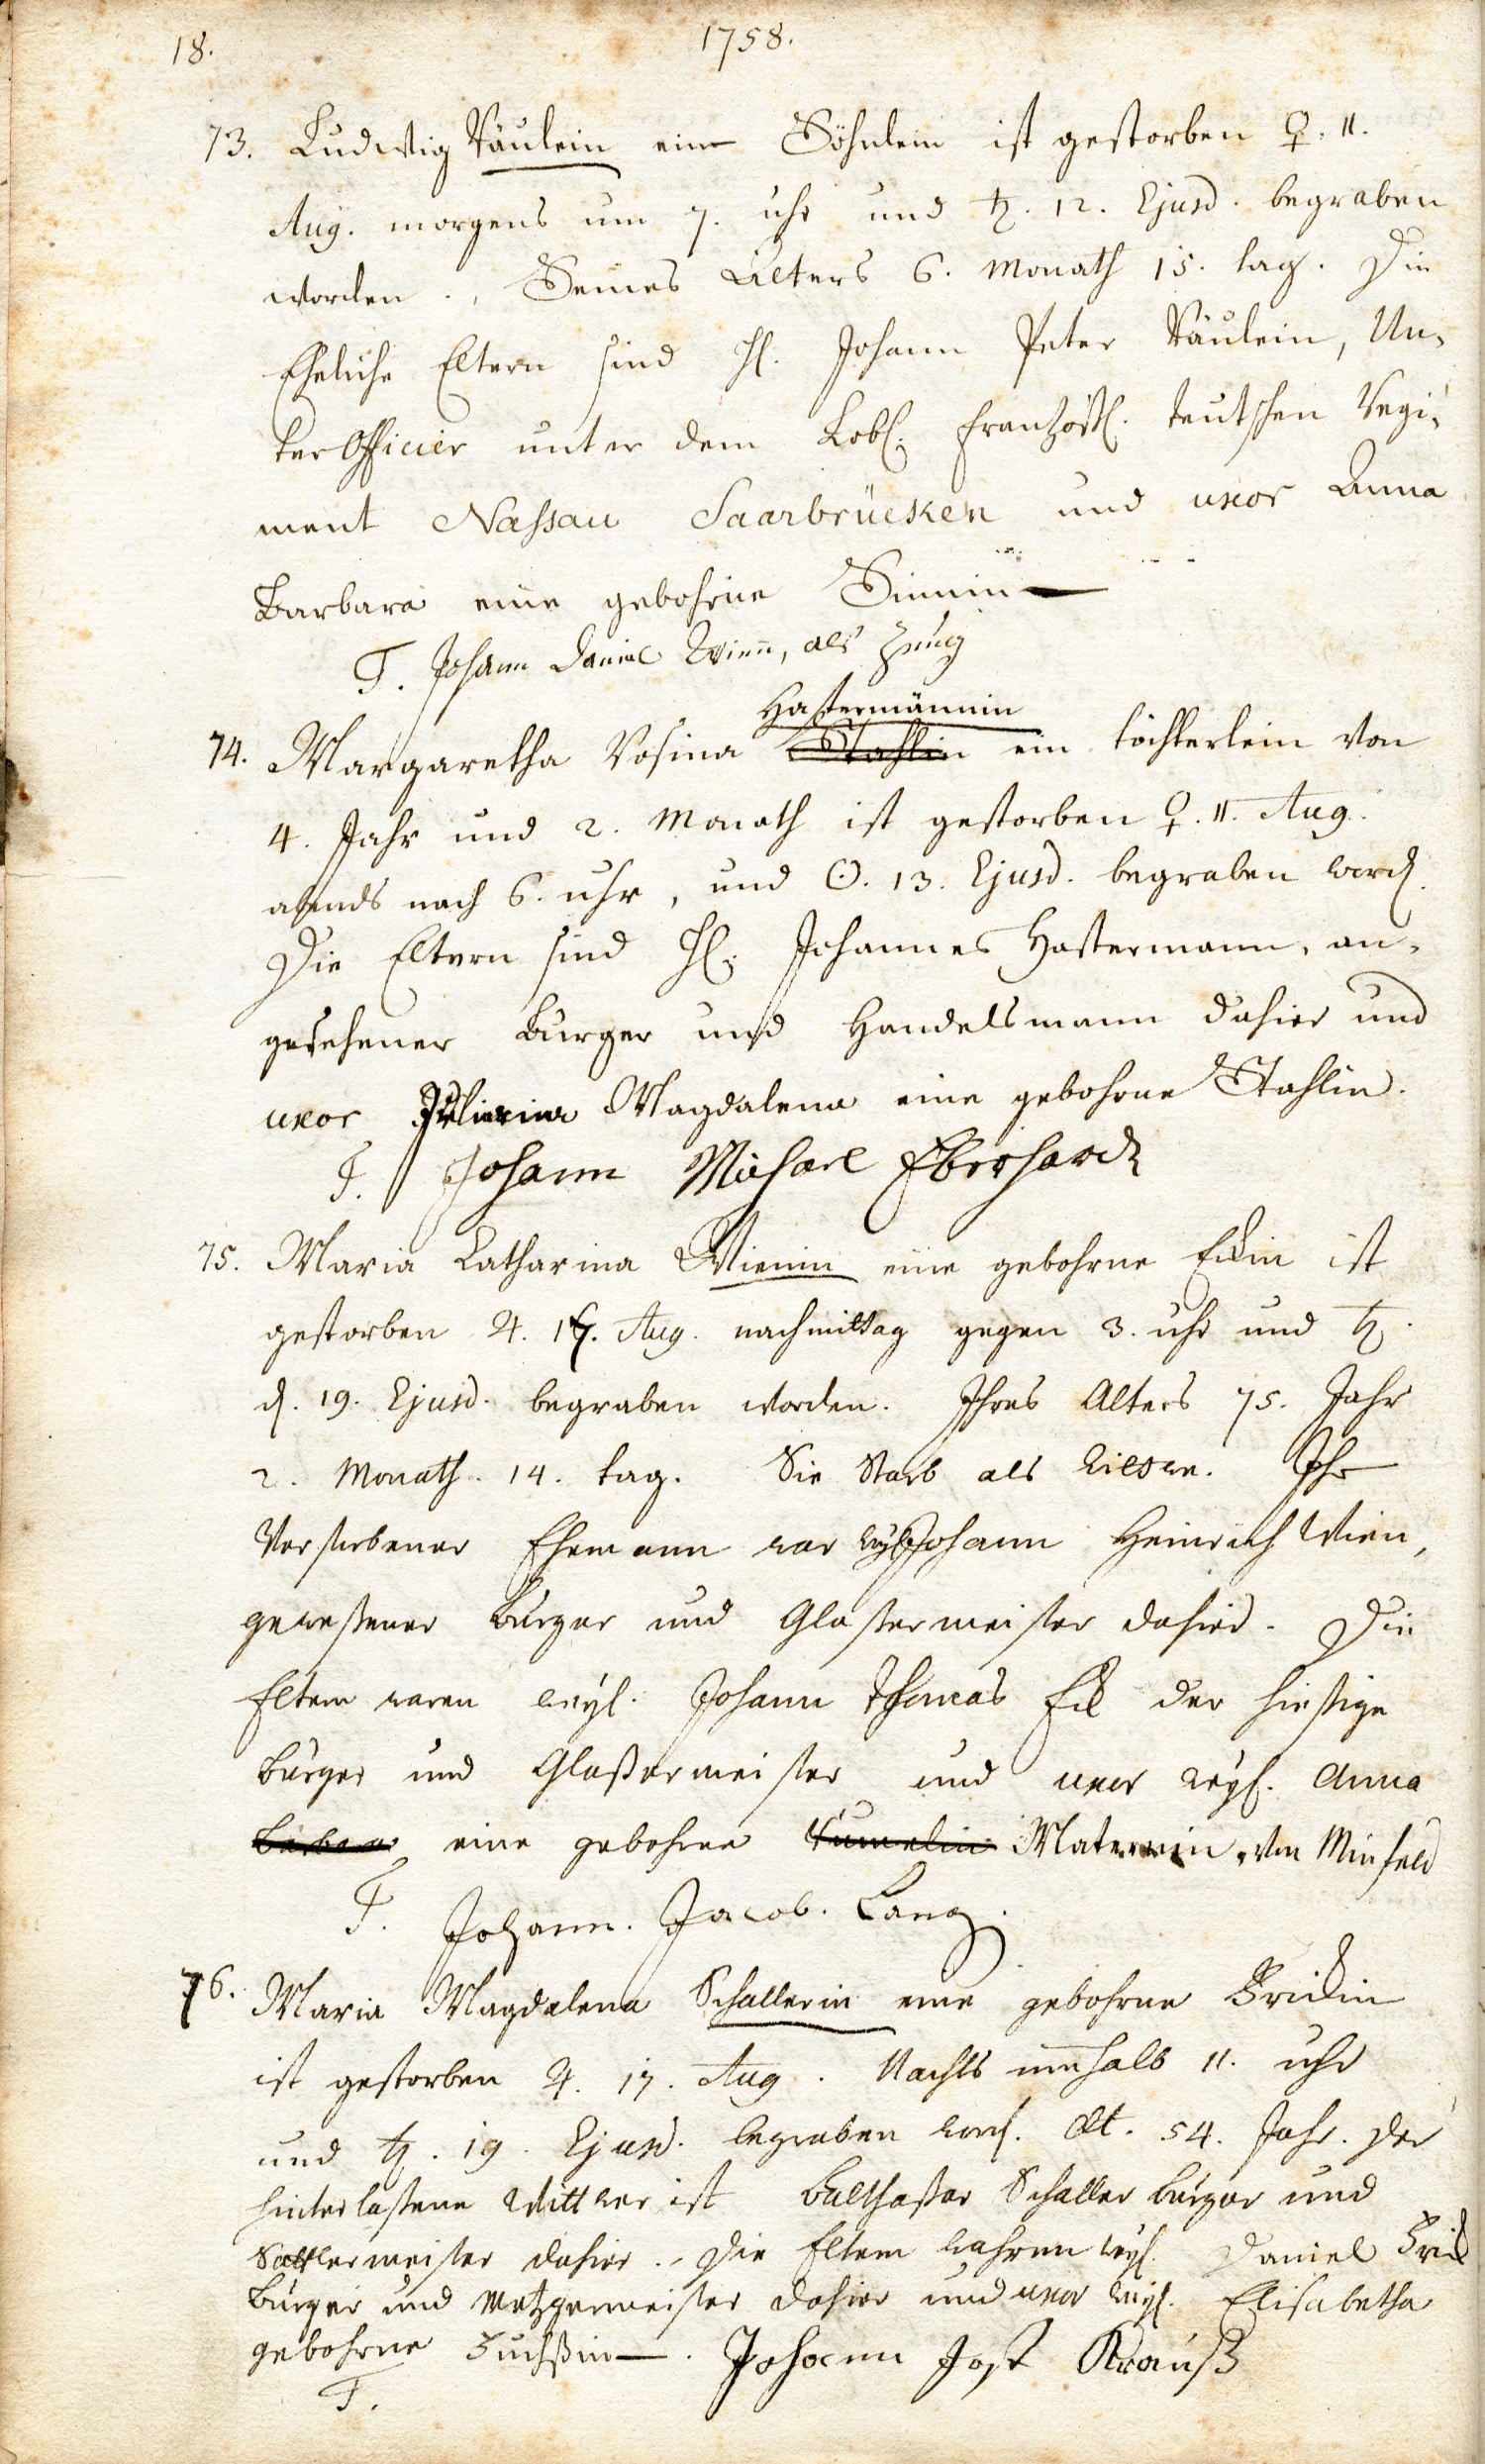 18.
1758.
73. Ludwig Räulein ein Söhnlein ist gestorben ♀. 11.
Aug. morgens um 7. uhr und ♄. 12. Ejusd. begraben
worden. Seines Alters 6. Monath 15. tag. Die
Eheliche Eltern sind H. Johann Peter Räulein, Un-
ter Officier unter dem Lobl. Französl. teutschen Regi-
ment Nassau Saarbrücken und uxor Anna
Barbara eine gebohrne
T. Johann Daniel Wienn, als Zeug
Hastermännin
74. Margaretha Rosina Stahlin ein töchterlein von
4. Jahr und 2. Monath ist gestorben ♀. 11. Aug.
abends nach 6. uhr, und ☉. 13. Ejusd. begraben word.
Die Eltern sind H. Johannes Hastermann, an-
gesehener Burger und Handelsmann dahier und
uxor Magdalena eine gebohrne Stahlin.
T. Johann Michael Eberhardt
75. Maria Catharina Wienin eine gebohrne Eckin ist
gestorben ♃. 17. Aug. nachmittag gegen 3. uhr und ♄.
d. 19. Ejusd. begraben worden. Ihres Alters 75. Jahr
2. Monath. 14. tag. Sie Starb als Wittwe. Ihr
Verstorbener Ehemann war weyl. Johann Heinrich Wien,
geweßener Burger und Glaßermeister dahier. Die
Eltern waren weyl. Johann Thomas Eck der hießige
Burger und Glaßermeister und uxor weyl. Anna
eine gebohrne Maternin von Minfeld
T. Johann. Jacob. Lang.
76. Maria Magdalena Schallerin eine gebohrne Frickin
ist gestorben ♃. 17. Aug. Nachts umhalb 11. uhr
und ♄. 19. Ejusd. begraben word. Alt. 54. Jahr. Der
hinterlaßene Wittwer ist Balthaßar Schaller burger und
Sattlermeister dahier. Die Eltern wahren weyl. Daniel Frick
Burger und Metzgermeister dahier und uxor weyl. Elisabetha
gebohrne Fuchßin. Johann Jost Krauß
T.